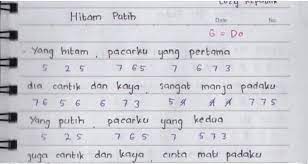 Hitam Putih
Date
No.
G = Do
Yang hitam, pacarku yang pertama
5 2 5 7 6 5 7 6 7 3
dia cantik dan kaya, sangat manja padaku
7 6 5 6 6 7 3 5 7 7 5
Yang putih, pacarku yang kedua
5 2 5 7 6 5 7 5 7 3
juga cantik dan kaya, cinta mati padaku